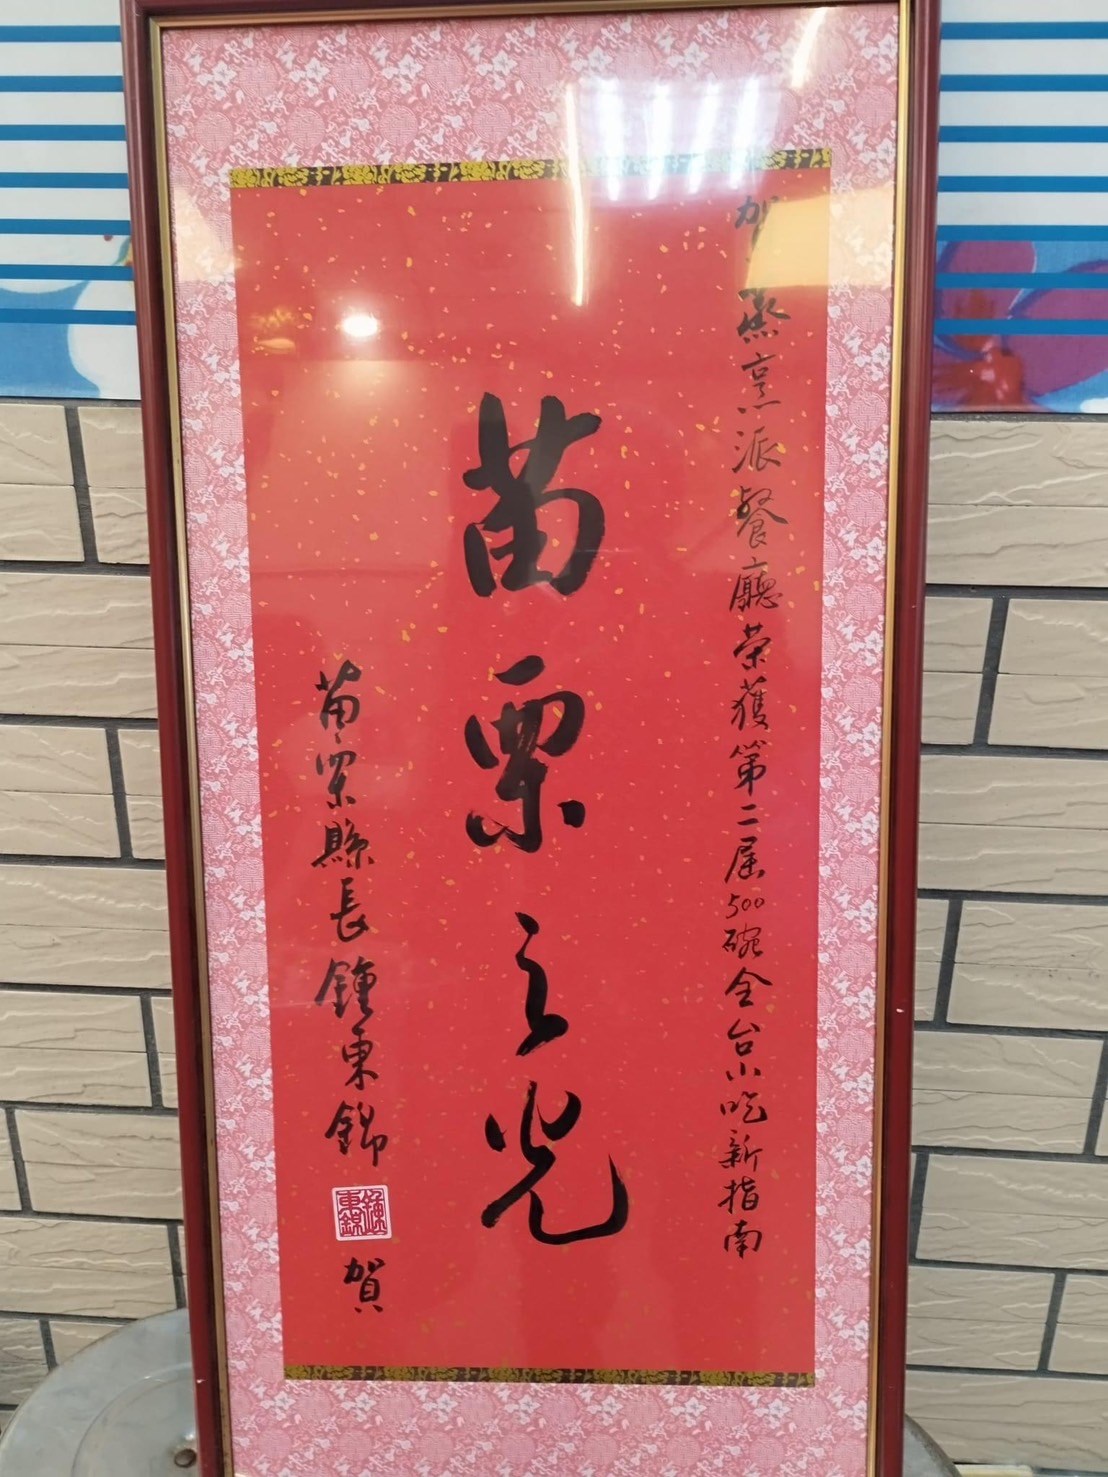 賀蒸烹派餐廳榮獲第二屆500碗全台小吃新指南
苗栗之光
苗栗縣長鍾東錦
鍾東錦
賀